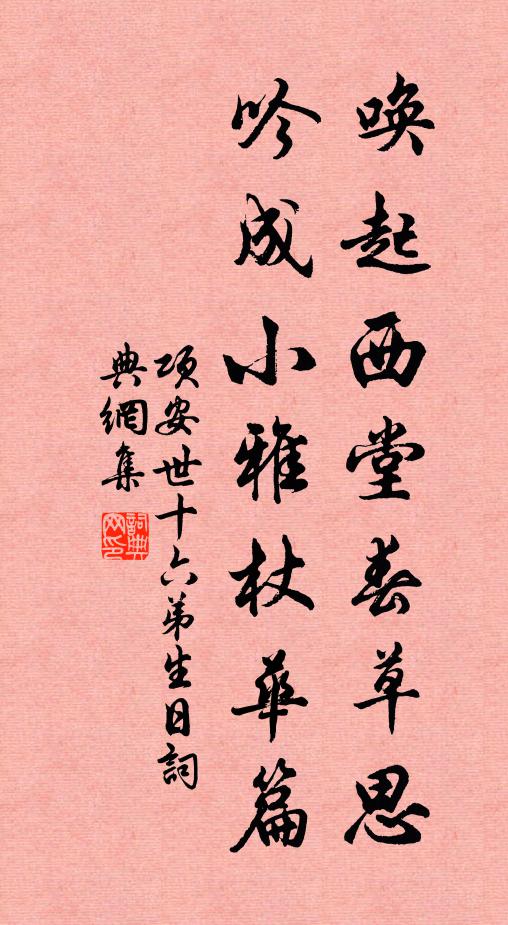 唤起西堂春草思
吟成小雅杕华篇
项安世十六弟生日詞
典網集
詞典網印